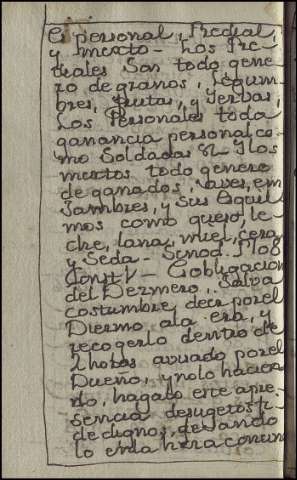 Es personal, Predial,
y mixto - Los Pre-
diales son todo gene-
ro de granos, Legum-
bres, frutas, y Yervas,
Los Personales toda
ganancia personal co-
mo Soldadas &. Y los
mixtos todo genero
de ganados, aves, em-
Jambres, y sus esquil-
mos como queso, le-
che, lana, miel, cera
y Seda - Sinod.
Const. - Obligacion
del Dezmero. Salva
costumbre, decir por el
Diezmo a la era, y
recogerlo dentro de
2 horas avisado por el
Dueño, y no lo hacien-
do, hagalo este a pre-
sencia de sugetos fi-
dedignos, dejando
lo en la hera comun